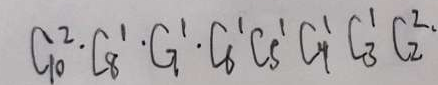 C₁₀²·C₈¹·C₇¹·C₆¹C₅¹C₄¹C₃¹C₂²·